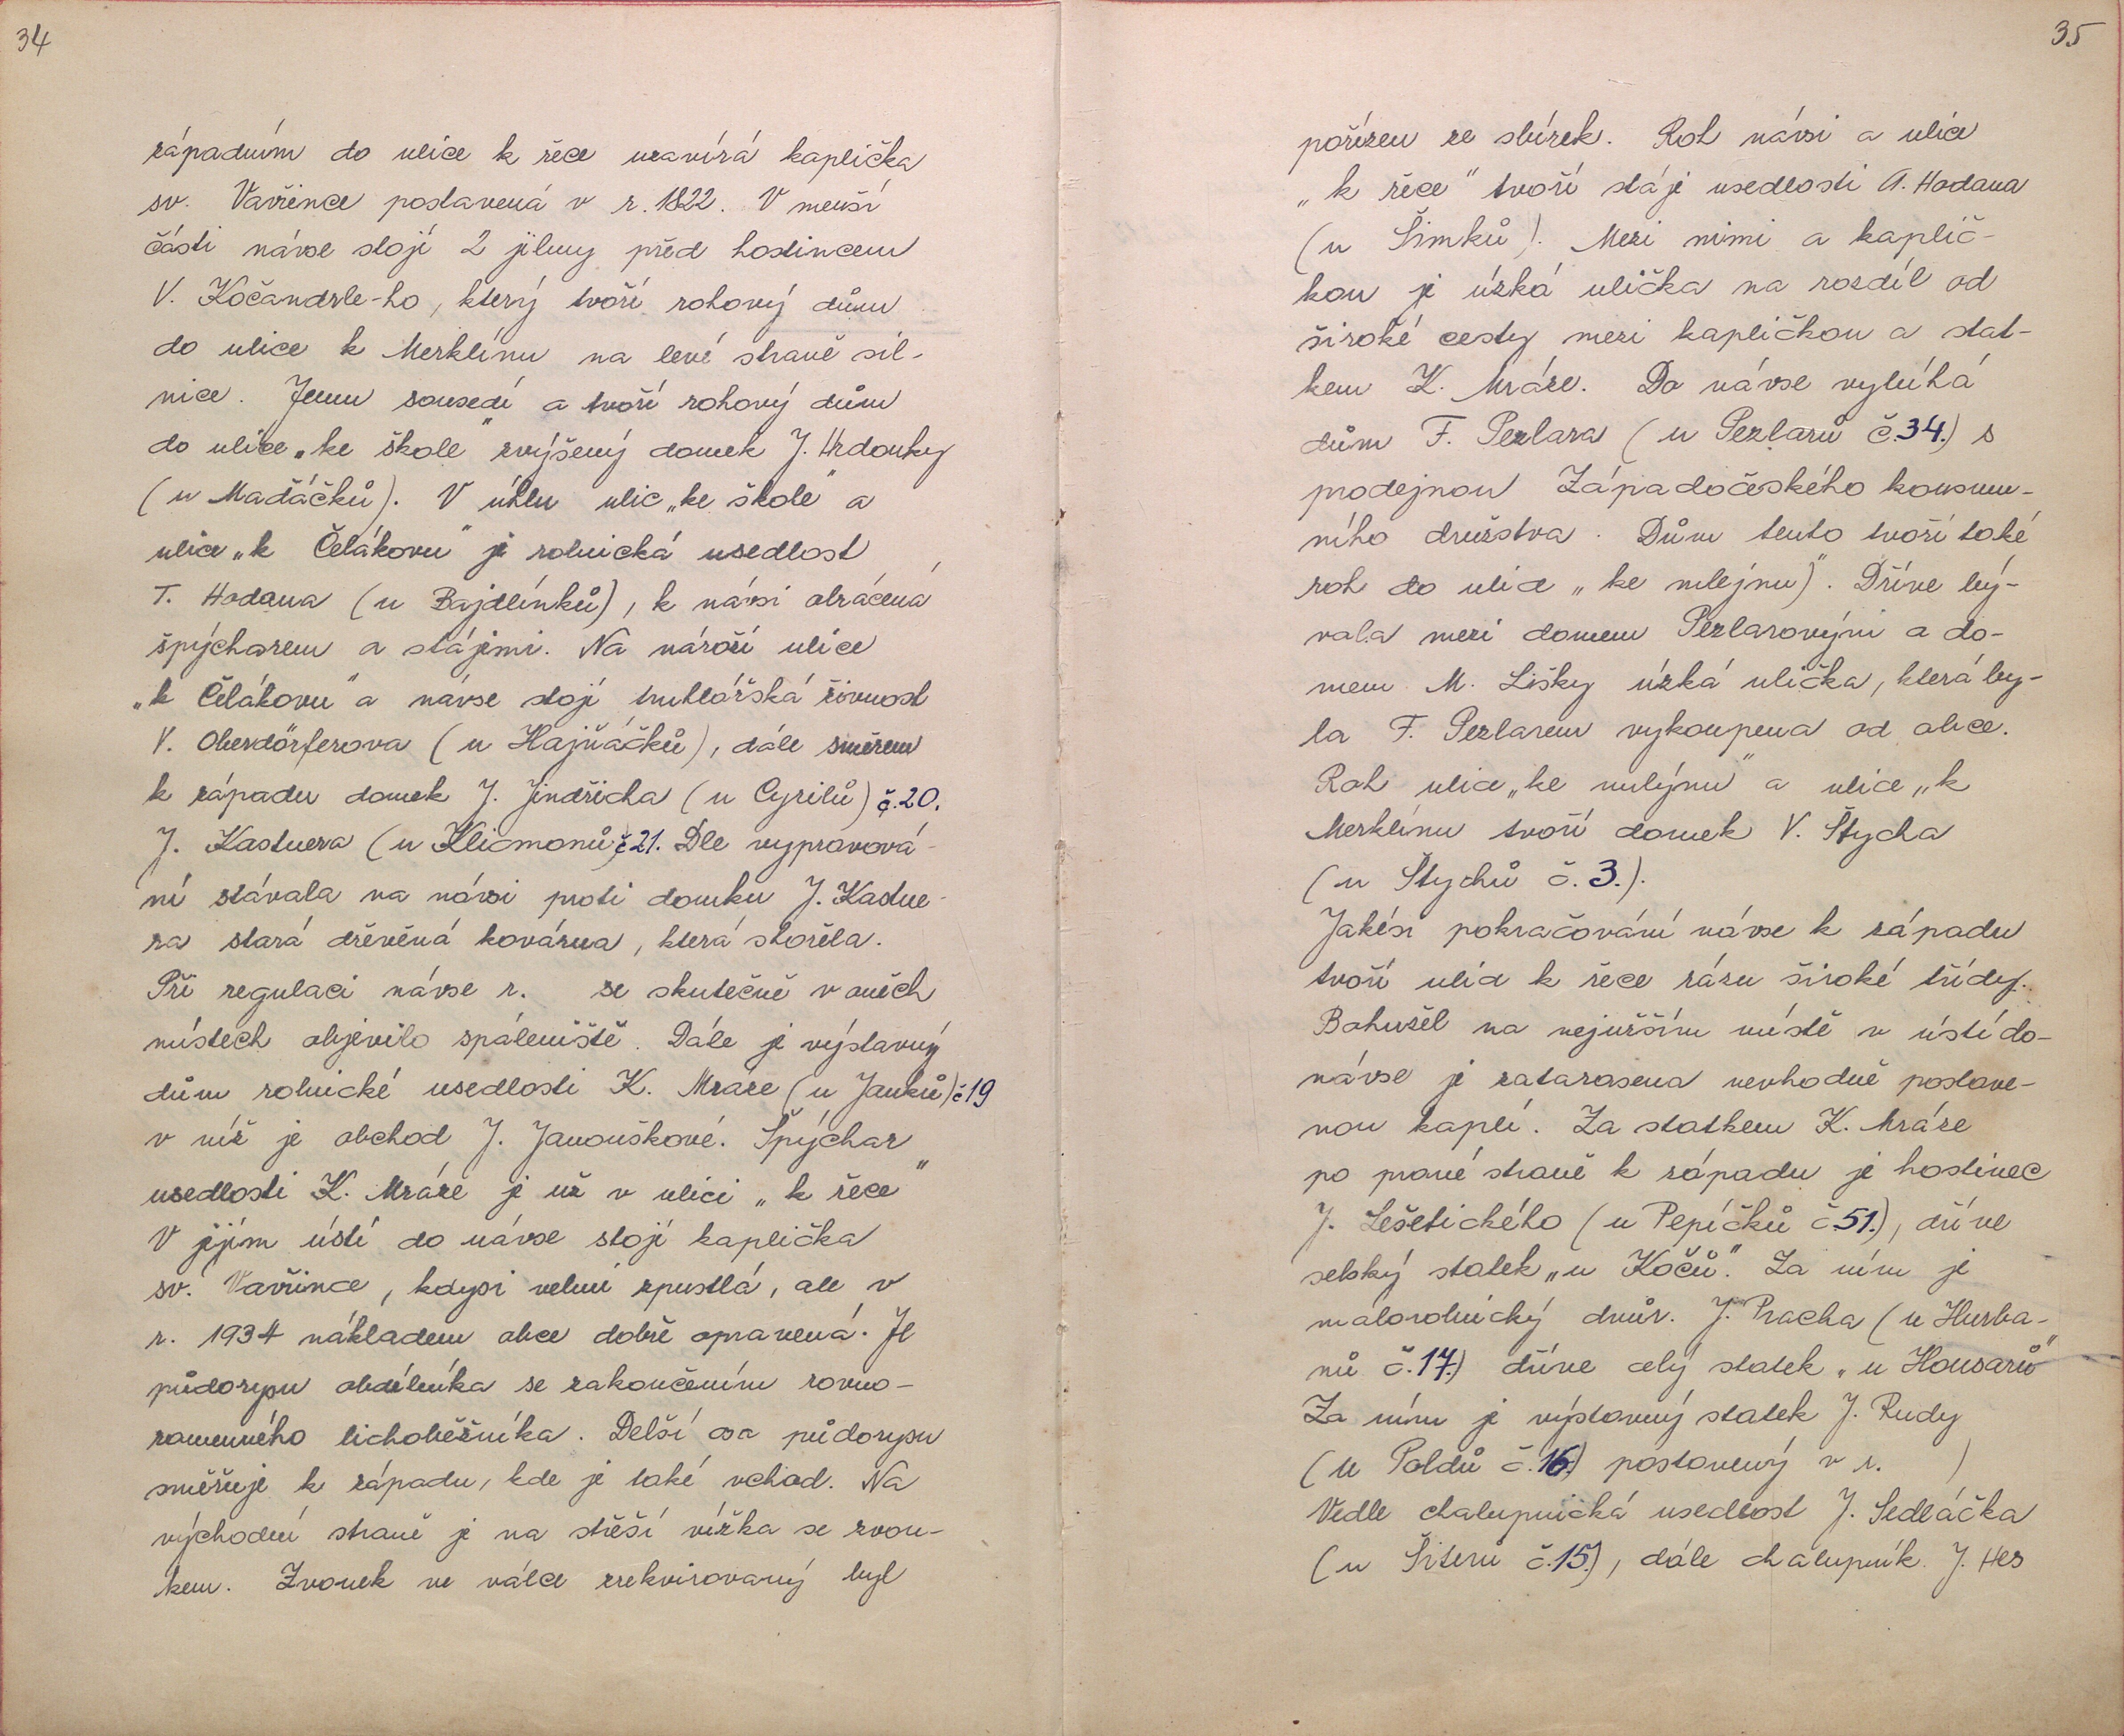 34
západním do ulice k řece uzavírá kaplička
sv. Vavřince postavená v r. 1822. V menší
části návse stojí 2 jilmy před hostincem
V. Kočandrle-ho, který tvoří rohový dům
do ulice k Merklínu na levé straně sil-
nice. Jemu sousedí a tvoří rohový dům
do ulice „ke škole" zvýšený domek J. Hrdonky
(u Maďáčků). V úhlu ulic „ke škole" a
ulice „k Čelákovu" je rolnická usedlost
T. Hodana (u Bajdlínků), k návsi obrácená
špýcharem a stájemi. Na nároží ulice
„k Čelákovu" a návse stojí truhlářská živnost
V. Oberdörferova (u Hajňáčků), dále směrem
k západu domek J. Jindřicha (u Cyrilů) č.20.
J. Kastnera (u Klicmonů) č21. Dle vypravová-
ní stávala na návsi proti domku J. Kastne-
ra stará dřevěná kovárna, která shořela.
Při regulaci návse r. se skutečně v oněch
místech objevilo spáleniště. Dále je výstavný
dům rolnické usedlosti K. Mráze (u Janků) č19
v níž je obchod J. Janouškové. Špýchar
usedlosti K. Mráze je už v ulici „k řece"
V jejím ústí do návse stojí kaplička
sv. Vavřince, kdysi velmi zpustlá, ale v
r. 1934 nákladem obce dobře opravená. Je
půdorysu obdélníka se zakončením rovno-
ramenného lichoběžníka. Delší osa půdorysu
směřuje k západu, kde je také vchod. Na
východní straně je na střeší vížka se zvon-
kem. Zvonek ve válce zrekvirovaný byl
35
pořízen ze sbírek. Roh návsi a ulice
„k řece" tvoří stáje usedlosti A. Hodana
(u Šimků). Mezi nimi a kaplič-
kou je úzká ulička na rozdíl od
široké cesty mezi kapličkou a stat-
kem K. Mráze. Do návse vybíhá
dům F. Pezlara (u Pezlarů č.34.) s
prodejnou Západočeského konsum-
ního družstva. Dům tento tvoří také
roh do ulice „ke mlejnu)". Dříve bý-
vala mezi domem Pezlarovým a do-
mem M. Lišky úzká ulička, která by-
la F. Pezlarem vykoupena od obce.
Roh ulice „ke mlýnu" a ulice „k
Merklínu tvoří domek V. Štycha
(u Štychů č.3.).
Jakési pokračování návse k západu
tvoří ulice k řece rázu široké třídy.
Bohužel na nejužším místě v ústí do-
návse je zatarasena nevhodně postave-
nou kaplí. Za statkem K. Mráze
po pravé straně k západu je hostinec
J. Lešetického (u Pepíčků č.51.), dříve
selský statek „u Kočů". Za ním je
malorolnický dvůr. J. Pracha (u Hurba-
nů č.17.) dříve celý statek „u Housarů"
Za ním je výstavný statek J. Rudy
(u Poldů č.16.) postavený v r. )
Vedle chalupnická usedlost J. Sedláčka
(u Šiterů č.15.), dále chalupník J. Hes